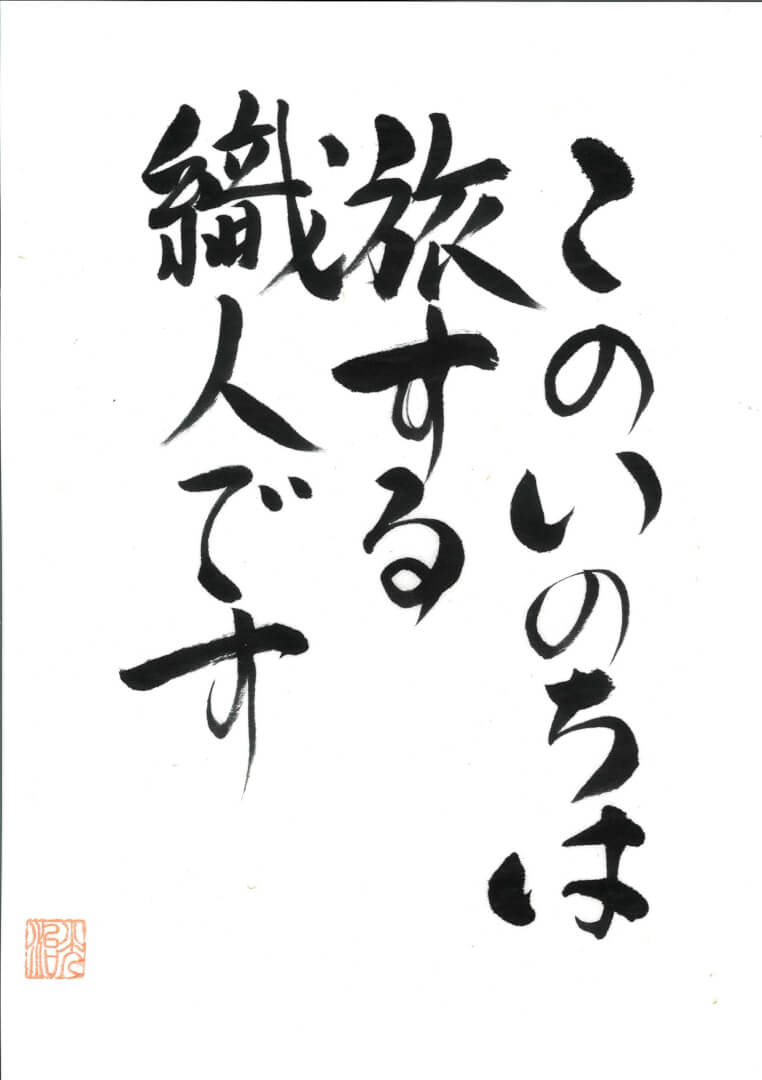 このいのちは
旅する
織人です